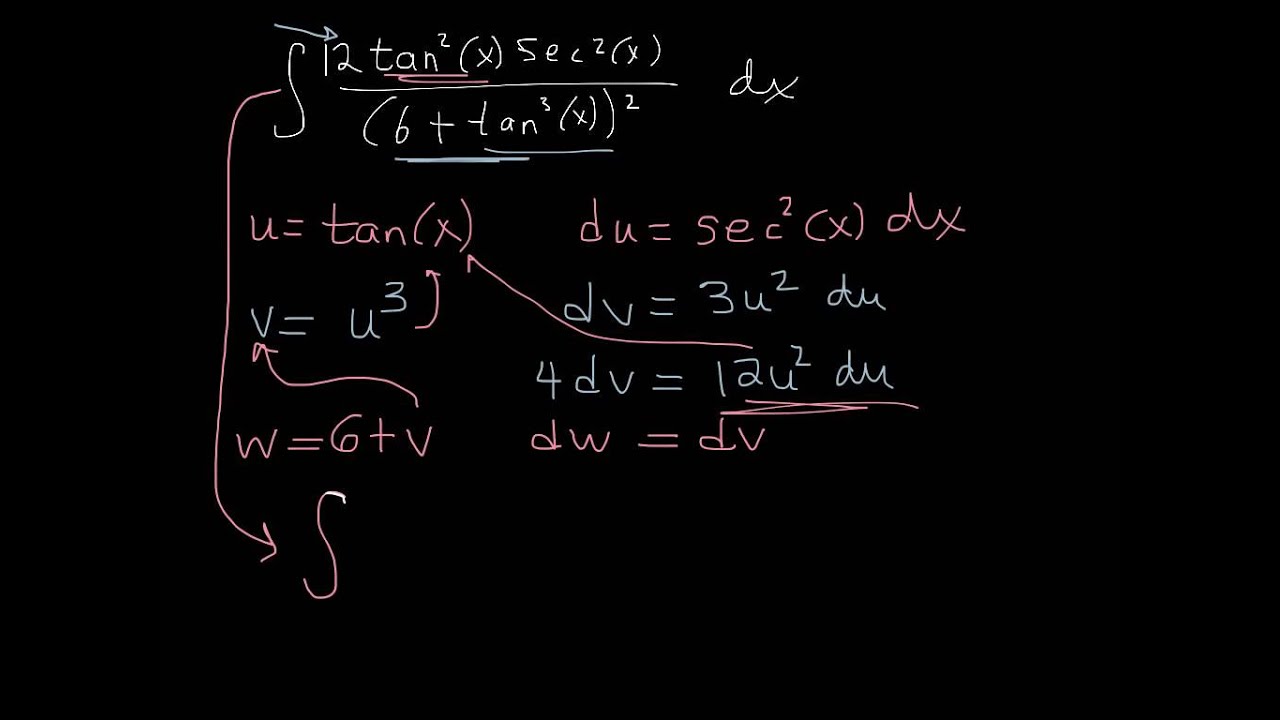 ∫ 12 tan²(x) sec²(x) / (6 + tan³(x))² dx
u = tan(x) du = sec²(x) dx
v = u³ dv = 3u² du
4dv = 12u² du
w = 6+v dw = dv
∫